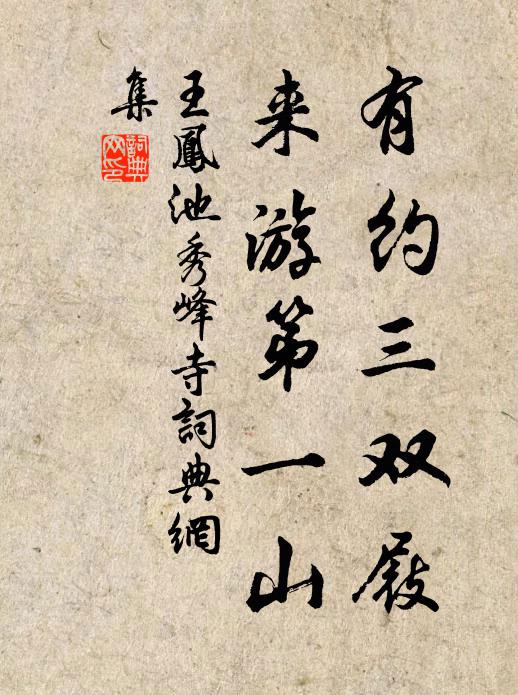 有约三双屐
来游第一山
王鳳池秀峰寺詞典網
集
詞典
网印